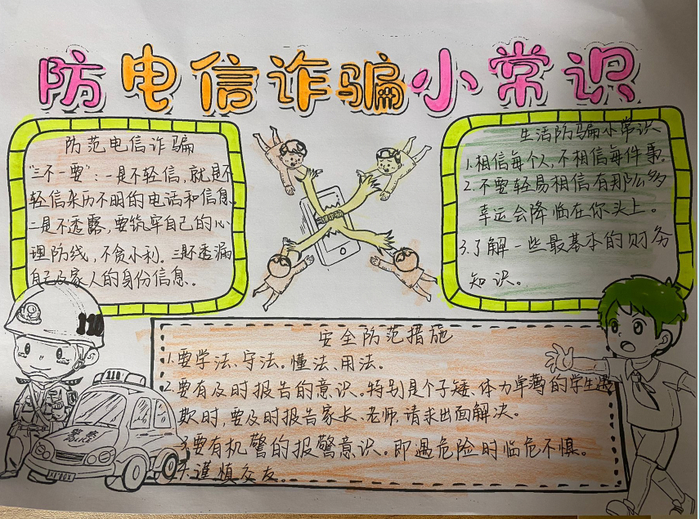 防电信诈骗小常识
防范电信诈骗
"三不一要"：一是不轻信，就是不
轻信来历不明的电话和信息、
二是不透露，要筑牢自己的心
理防线，不贪小利。三是不透漏
自己及家人的身份信息.
生活防骗小常识
1.相信每个人,不相信每件事.
2.不要轻易相信有那么多
幸运会降临在你头上。
3.了解一些最基本的财务
知识。
安全防范措施
1.要学法、守法、懂法、用法。
2.要有及时报告的意识。特别是个子矮、体力单薄的学生遇
欺时,要及时报告家长、老师,请求出面解决。
3.要有机警的报警意识。即遇危险时临危不惧。
4.谨慎交友。
警察